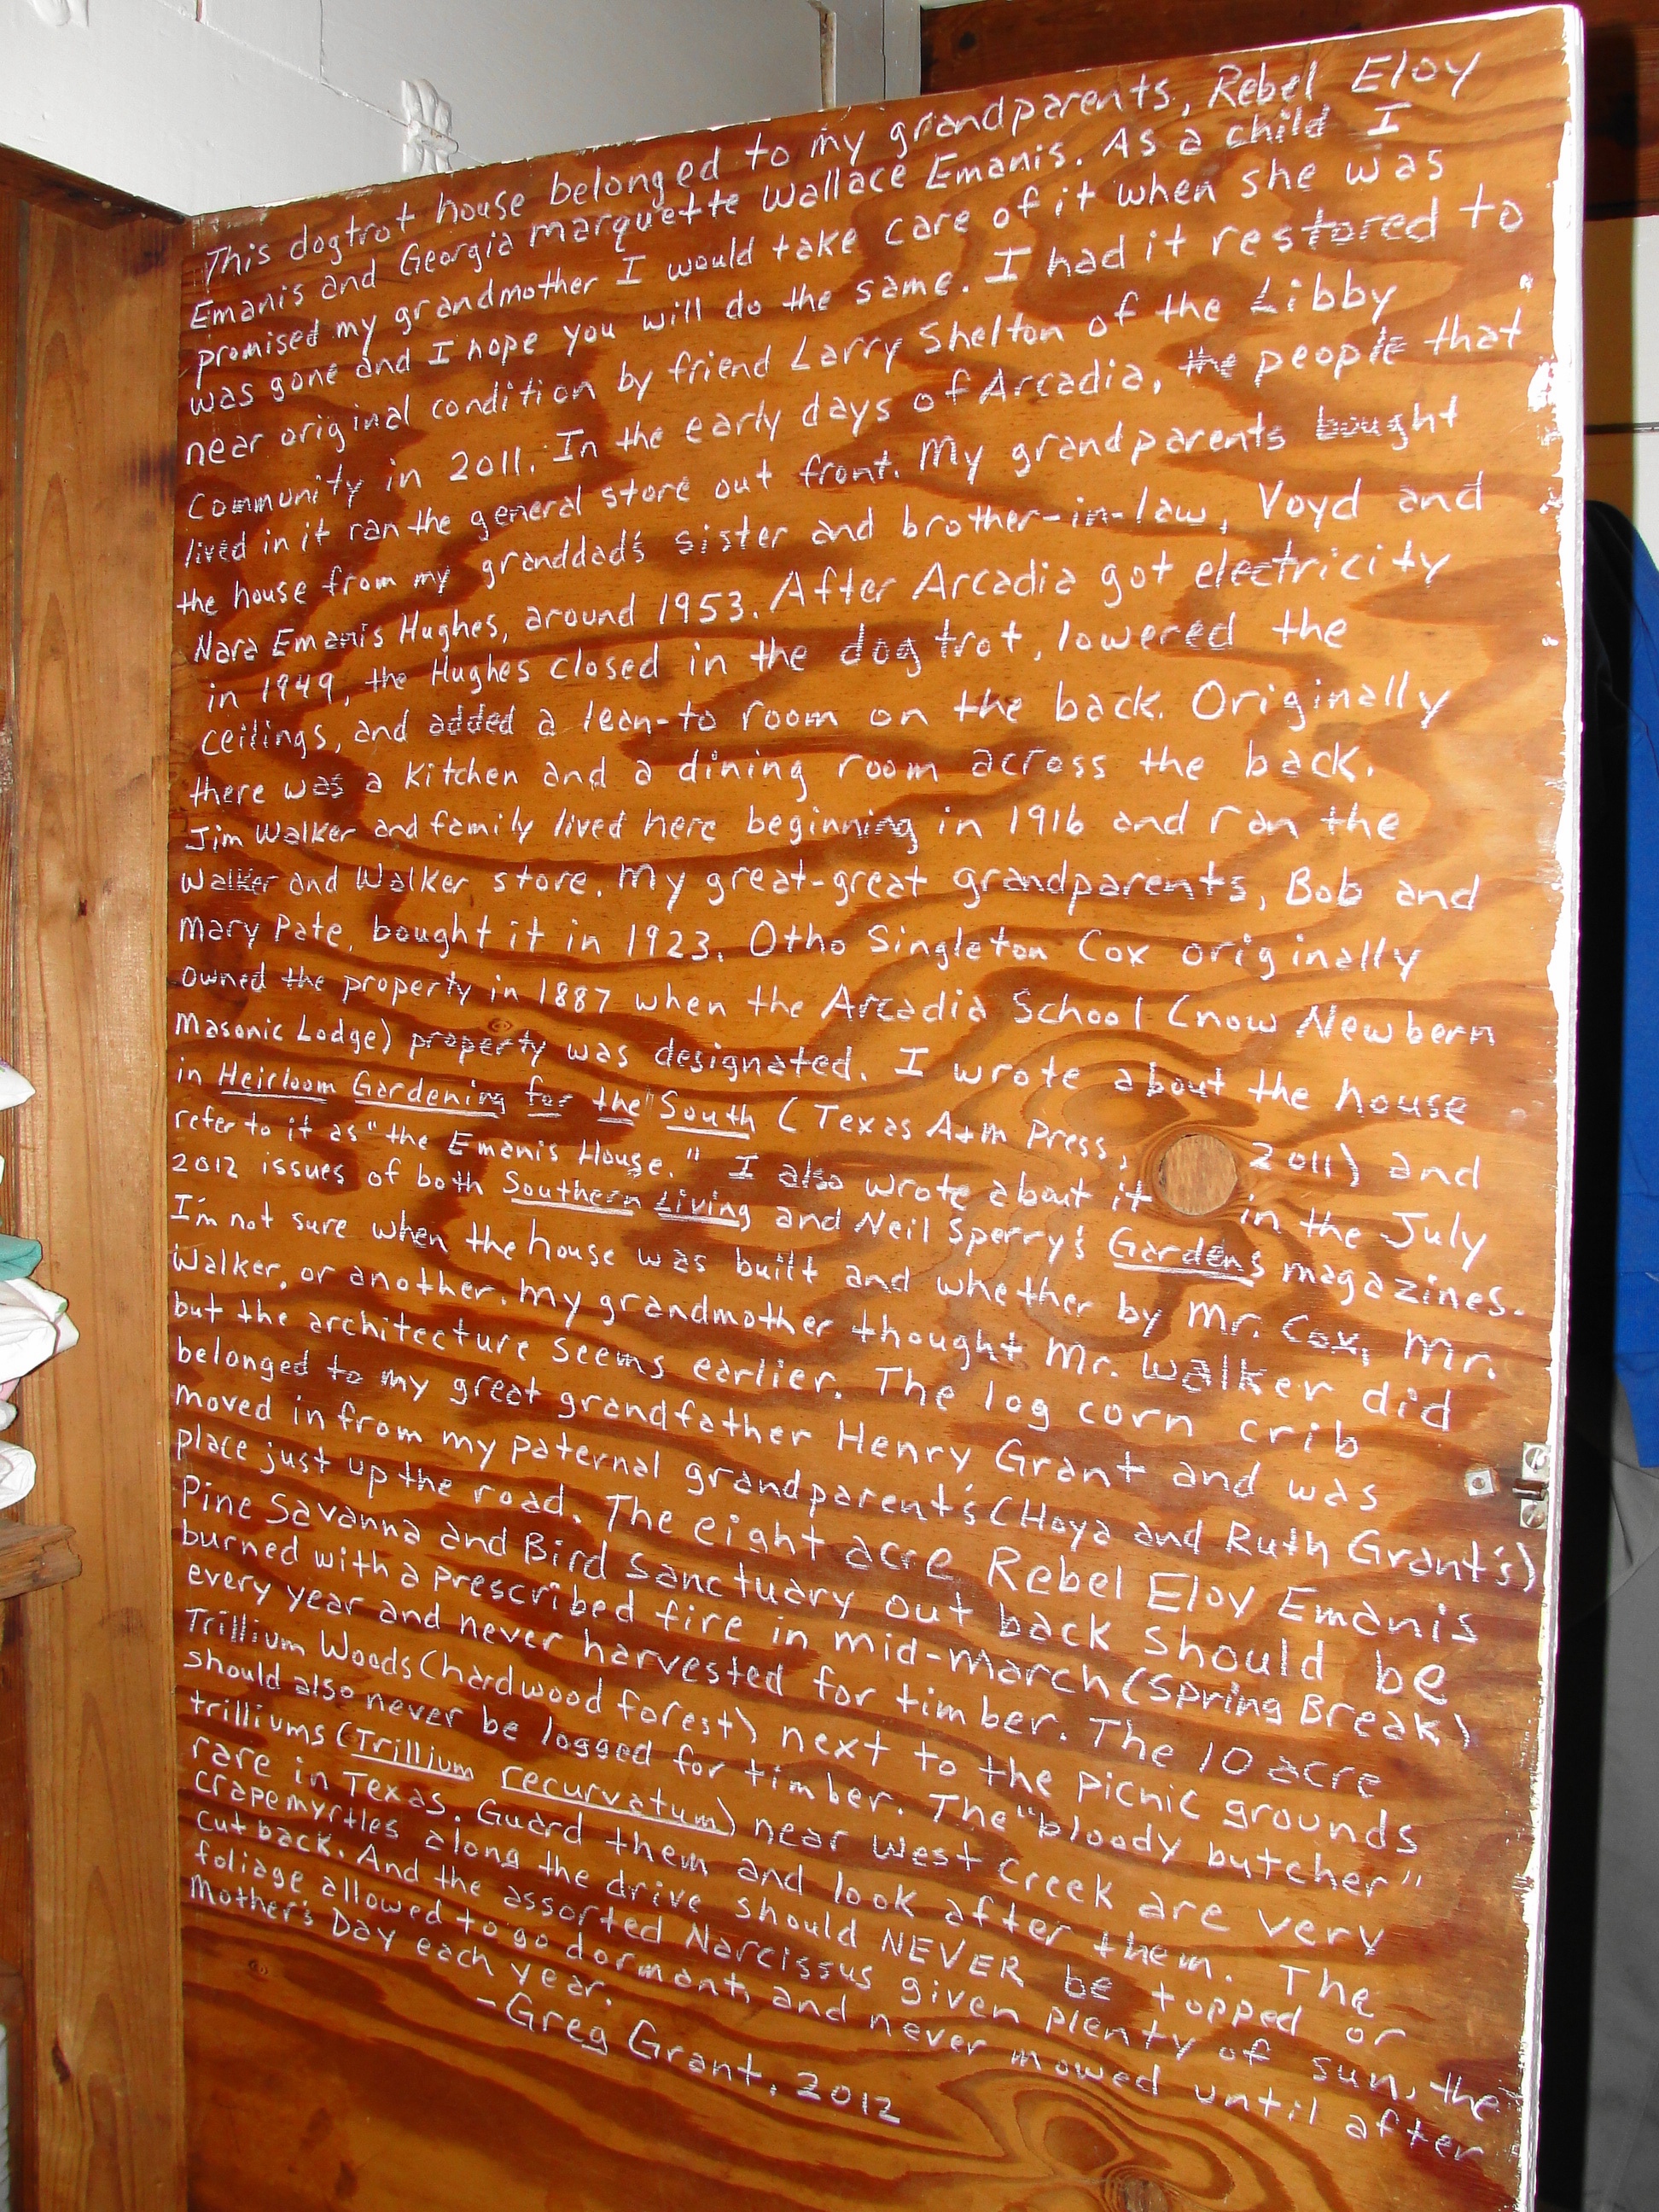 This dogtrot house belonged to my grandparents, Rebel Eloy
Emanis and Georgia Marquette Wallace Emanis. As a child I
promised my grandmother I would take care of it when she was
was gone and I hope you will do the same. I had it restored to
near original condition by friend Larry Shelton of the Libby
Community in 2011. In the early days of Arcadia, the people that
lived in it ran the general store out front. My grandparents bought
the house from my granddad's sister and brother-in-law, Voyd and
Nara Emanis Hughes, around 1953. After Arcadia got electricity
in 1949, the Hughes closed in the dog trot, lowered the
ceilings, and added a lean-to room on the back. Originally
there was a kitchen and a dining room across the back.
Jim Walker and family lived here beginning in 1916 and ran the
Walker and Walker store. My great-great grandparents, Bob and
Mary Pate, bought it in 1923. Otho Singleton Cox originally
owned the property in 1887 when the Arcadia School (now Newbern
Masonic Lodge) property was designated. I wrote about the house
in Heirloom Gardening for the South (Texas A+M Press, 2011) and
refer to it as "the Emanis House." I also wrote about it in the July
2012 issues of both Southern Living and Neil Sperry's Gardens magazines.
I'm not sure when the house was built and whether by Mr. Cox, Mr.
Walker, or another. My grandmother thought Mr. Walker did
but the architecture seems earlier. The log corn crib
belonged to my great grandfather Henry Grant and was
moved in from my paternal grandparent's (Hoya and Ruth Grant's)
place just up the road. The eight acre Rebel Eloy Emanis
Pine Savanna and Bird Sanctuary out back should be
burned with a prescribed fire in mid-March (Spring Break)
every year and never harvested for timber. The 10 acre
Trillium Woods (hardwood forest) next to the picnic grounds
should also never be logged for timber. The "bloody butcher"
trilliums (Trillium recurvatum) near West Creek are very
rare in Texas. Guard them and look after them. The
crapemyrtles along the drive should NEVER be topped or
cut back. And the assorted Narcissus given plenty of sun, the
foliage allowed to go dormant, and never mowed until after
Mother's Day each year.
-Greg Grant, 2012